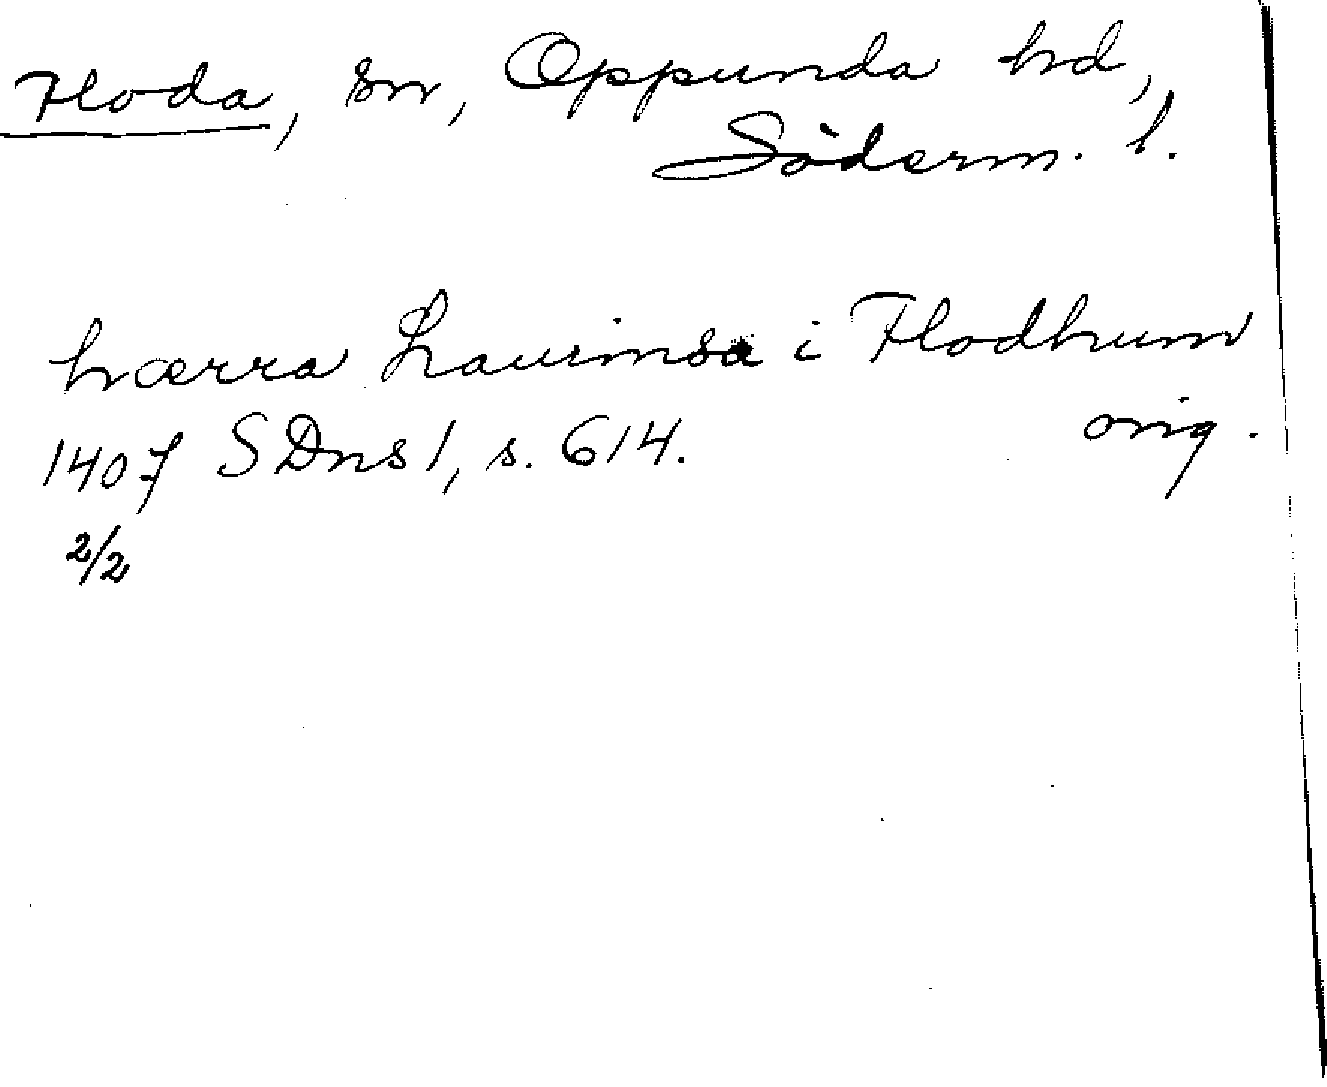 Floda, sn, Oppunda hd,
Söderm. l.
hærra Laurinsa i Flodhum
1407 SDns 1, s. 614. orig.
2/2